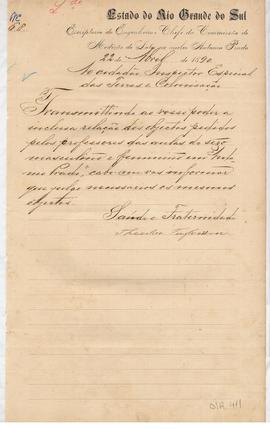 Estado do Rio Grande do Sul
Escriptorio do Engenheiro Chefe da Commissão de
Medição de Lotes na Antonio Prado
22 de Abril de 1890
Ao cidadão Inspector Especial
das Terras e Colonisação
Transmittindo ao vosso poder a
inclusa relação dos objectos pedidos
pelos professores das aulas do sexo
masculino e feminino em Anto
nio Prado, cabe-me vos informar
que julgo necessarios os mesmos
objectos.
Saude e Fraternidade